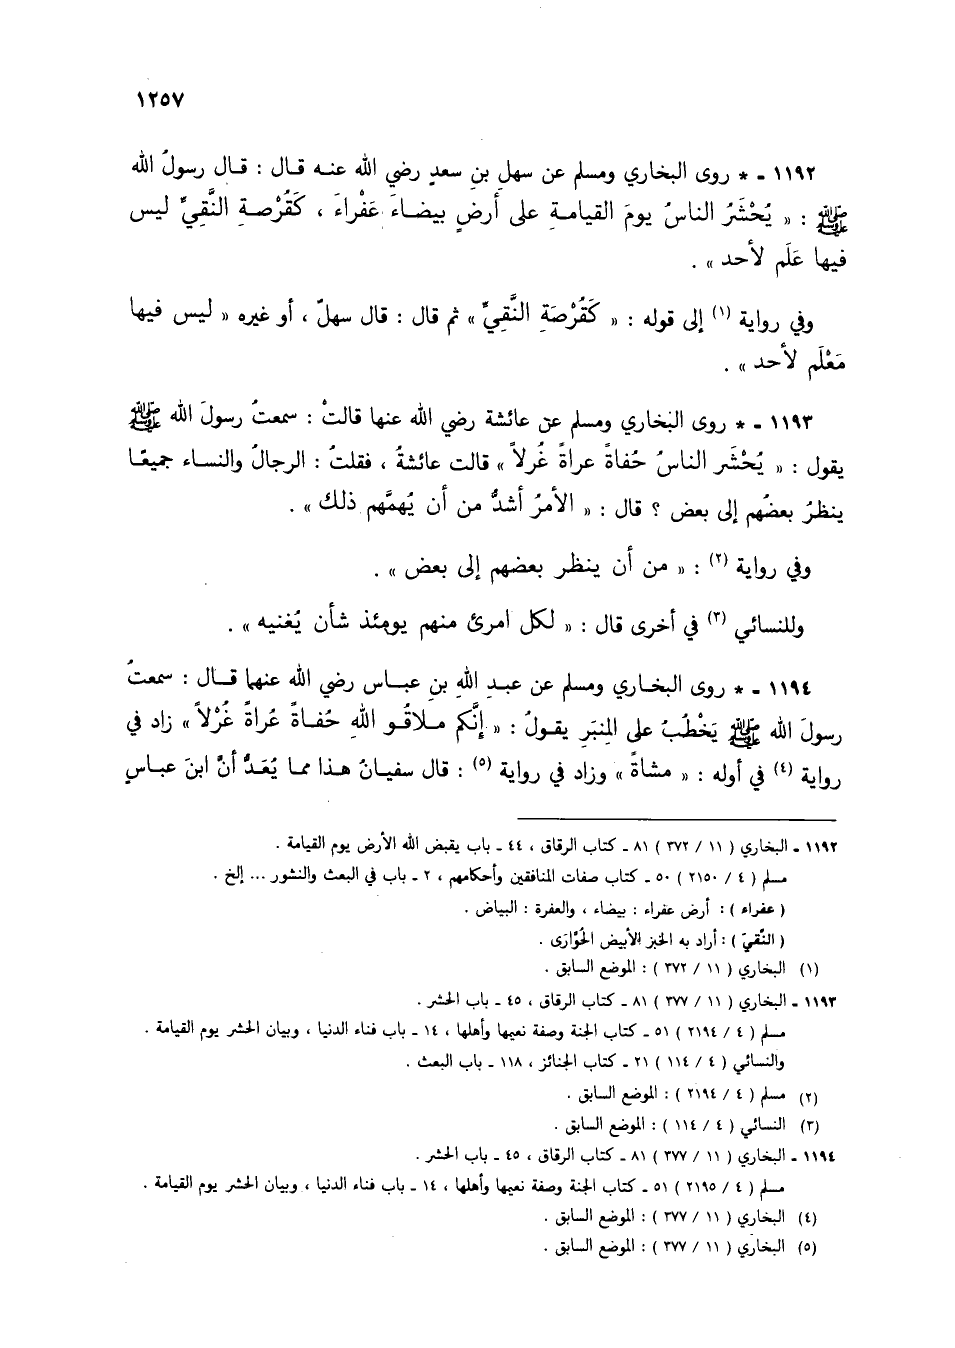 ١٢٥٧
١١٩٢ - * روى البخاري ومسلم عن سهل بنِ سعدٍ رضي الله عنـه قـال : قـال رسولُ الله
ﷺ : « يُحْشَرُ الناسُ يومَ القيامـةِ على أرضٍ بيضـاءَ عَفْراءَ ، كَقُرْصـةِ النَّقِيِّ ليس
فيها عَلَم لأحد » .
وفي رواية (١) إلى قوله : « كَقُرْصَةِ النَّقِيِّ » ثم قال : قال سهلٌ ، أو غيره « ليس فيها
مَعْلَم لأحد » .
١١٩٣ - * روى البخاري ومسلم عن عائشة رضي الله عنها قالتْ : سمعتُ رسولَ الله ﷺ
يقول : « يُحْشَر الناسُ حُفاةً عراةً غُرلاً » قالت عائشةُ ، فقلتُ : الرجالُ والنساء جميعًا
ينظرُ بعضُهم إلى بعض ؟ قال : « الأمرُ أشدُّ من أن يُهمَّهم ذلك » .
وفي رواية (٢) : « من أن ينظر بعضهم إلى بعض » .
وللنسائي (٣) في أخرى قال : « لكل امرئ منهم يومئذ شأن يُغنيه » .
١١٩٤ - * روى البخـاري ومسلم عن عبـدِ اللهِ بنِ عبـاس رضي الله عنهما قـال : سمعتُ
رسولَ الله ﷺ يَخْطُبُ على المِنبَر يقـولُ : « إنَّكم مـلاقُـو اللهِ حُفـاةً عُراةً غُرْلاً » زاد في
رواية (٤) في أوله : « مشاةً » وزاد في رواية (٥) : قال سفيـانُ هـذا ممـا يُعَـدُّ أنَّ ابنَ عبـاسٍ
١١٩٢ - البخاري ( ١١ / ٣٧٢ ) ٨١ - كتاب الرقاق ، ٤٤ - باب يقبض الله الأرض يوم القيامة .
مسلم ( ٤ / ٢١٥٠ ) ٥٠ - كتاب صفات المنافقين وأحكامهم ، ٢ - باب في البعث والنشور ... إلخ .
( عفراء ) : أرض عفراء : بيضاء ، والعفرة : البياض .
( النَّقِيّ ) : أراد به الخبز الأبيض الحُوَّارَى .
(١) البخاري ( ١١ / ٣٧٢ ) : الموضع السابق .
١١٩٣ - البخاري ( ١١ / ٣٧٧ ) ٨١ - كتاب الرقاق ، ٤٥ - باب الحشر .
مسلم ( ٤ / ٢١٩٤ ) ٥١ - كتاب الجنة وصفة نعيمها وأهلها ، ١٤ - باب فناء الدنيا ، وبيان الحشر يوم القيامة .
والنسائي ( ٤ / ١١٤ ) ٢١ - كتاب الجنائز ، ١١٨ - باب البعث .
(٢) مسلم ( ٤ / ٢١٩٤ ) : الموضع السابق .
(٣) النسائي ( ٤ / ١١٤ ) : الموضع السابق .
١١٩٤ - البخاري ( ١١ / ٣٧٧ ) ٨١ - كتاب الرقاق ، ٤٥ - باب الحشر .
مسلم ( ٤ / ٢١٩٥ ) ٥١ - كتاب الجنة وصفة نعيمها وأهلها ، ١٤ - باب فناء الدنيا ، وبيان الحشر يوم القيامة .
(٤) البخاري ( ١١ / ٣٧٧ ) : الموضع السابق .
(٥) البخاري ( ١١ / ٣٧٧ ) : الموضع السابق .